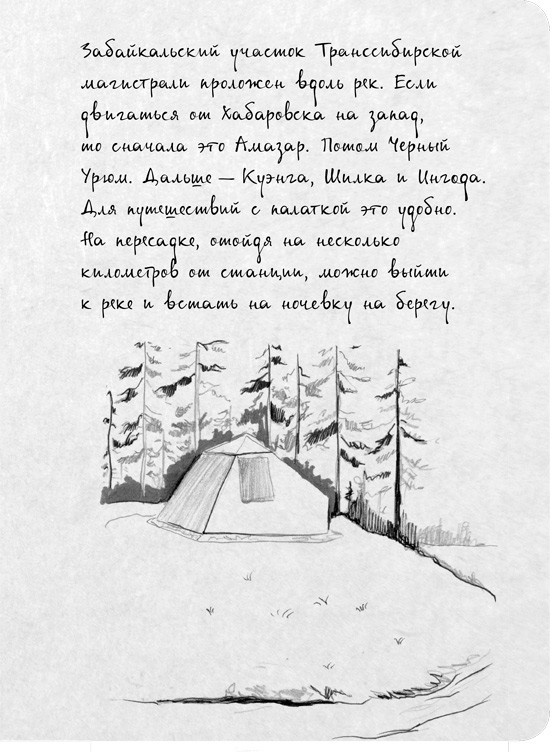 Забайкальский участок Транссибирской
магистрали проложен вдоль рек. Если
двигаться от Хабаровска на запад,
то сначала это Амазар. Потом Черный
Урюм. Дальше — Куэнга, Шилка и Ингода.
Для путешествий с палаткой это удобно.
На пересадке, отойдя на несколько
километров от станции, можно выйти
к реке и встать на ночевку на берегу.